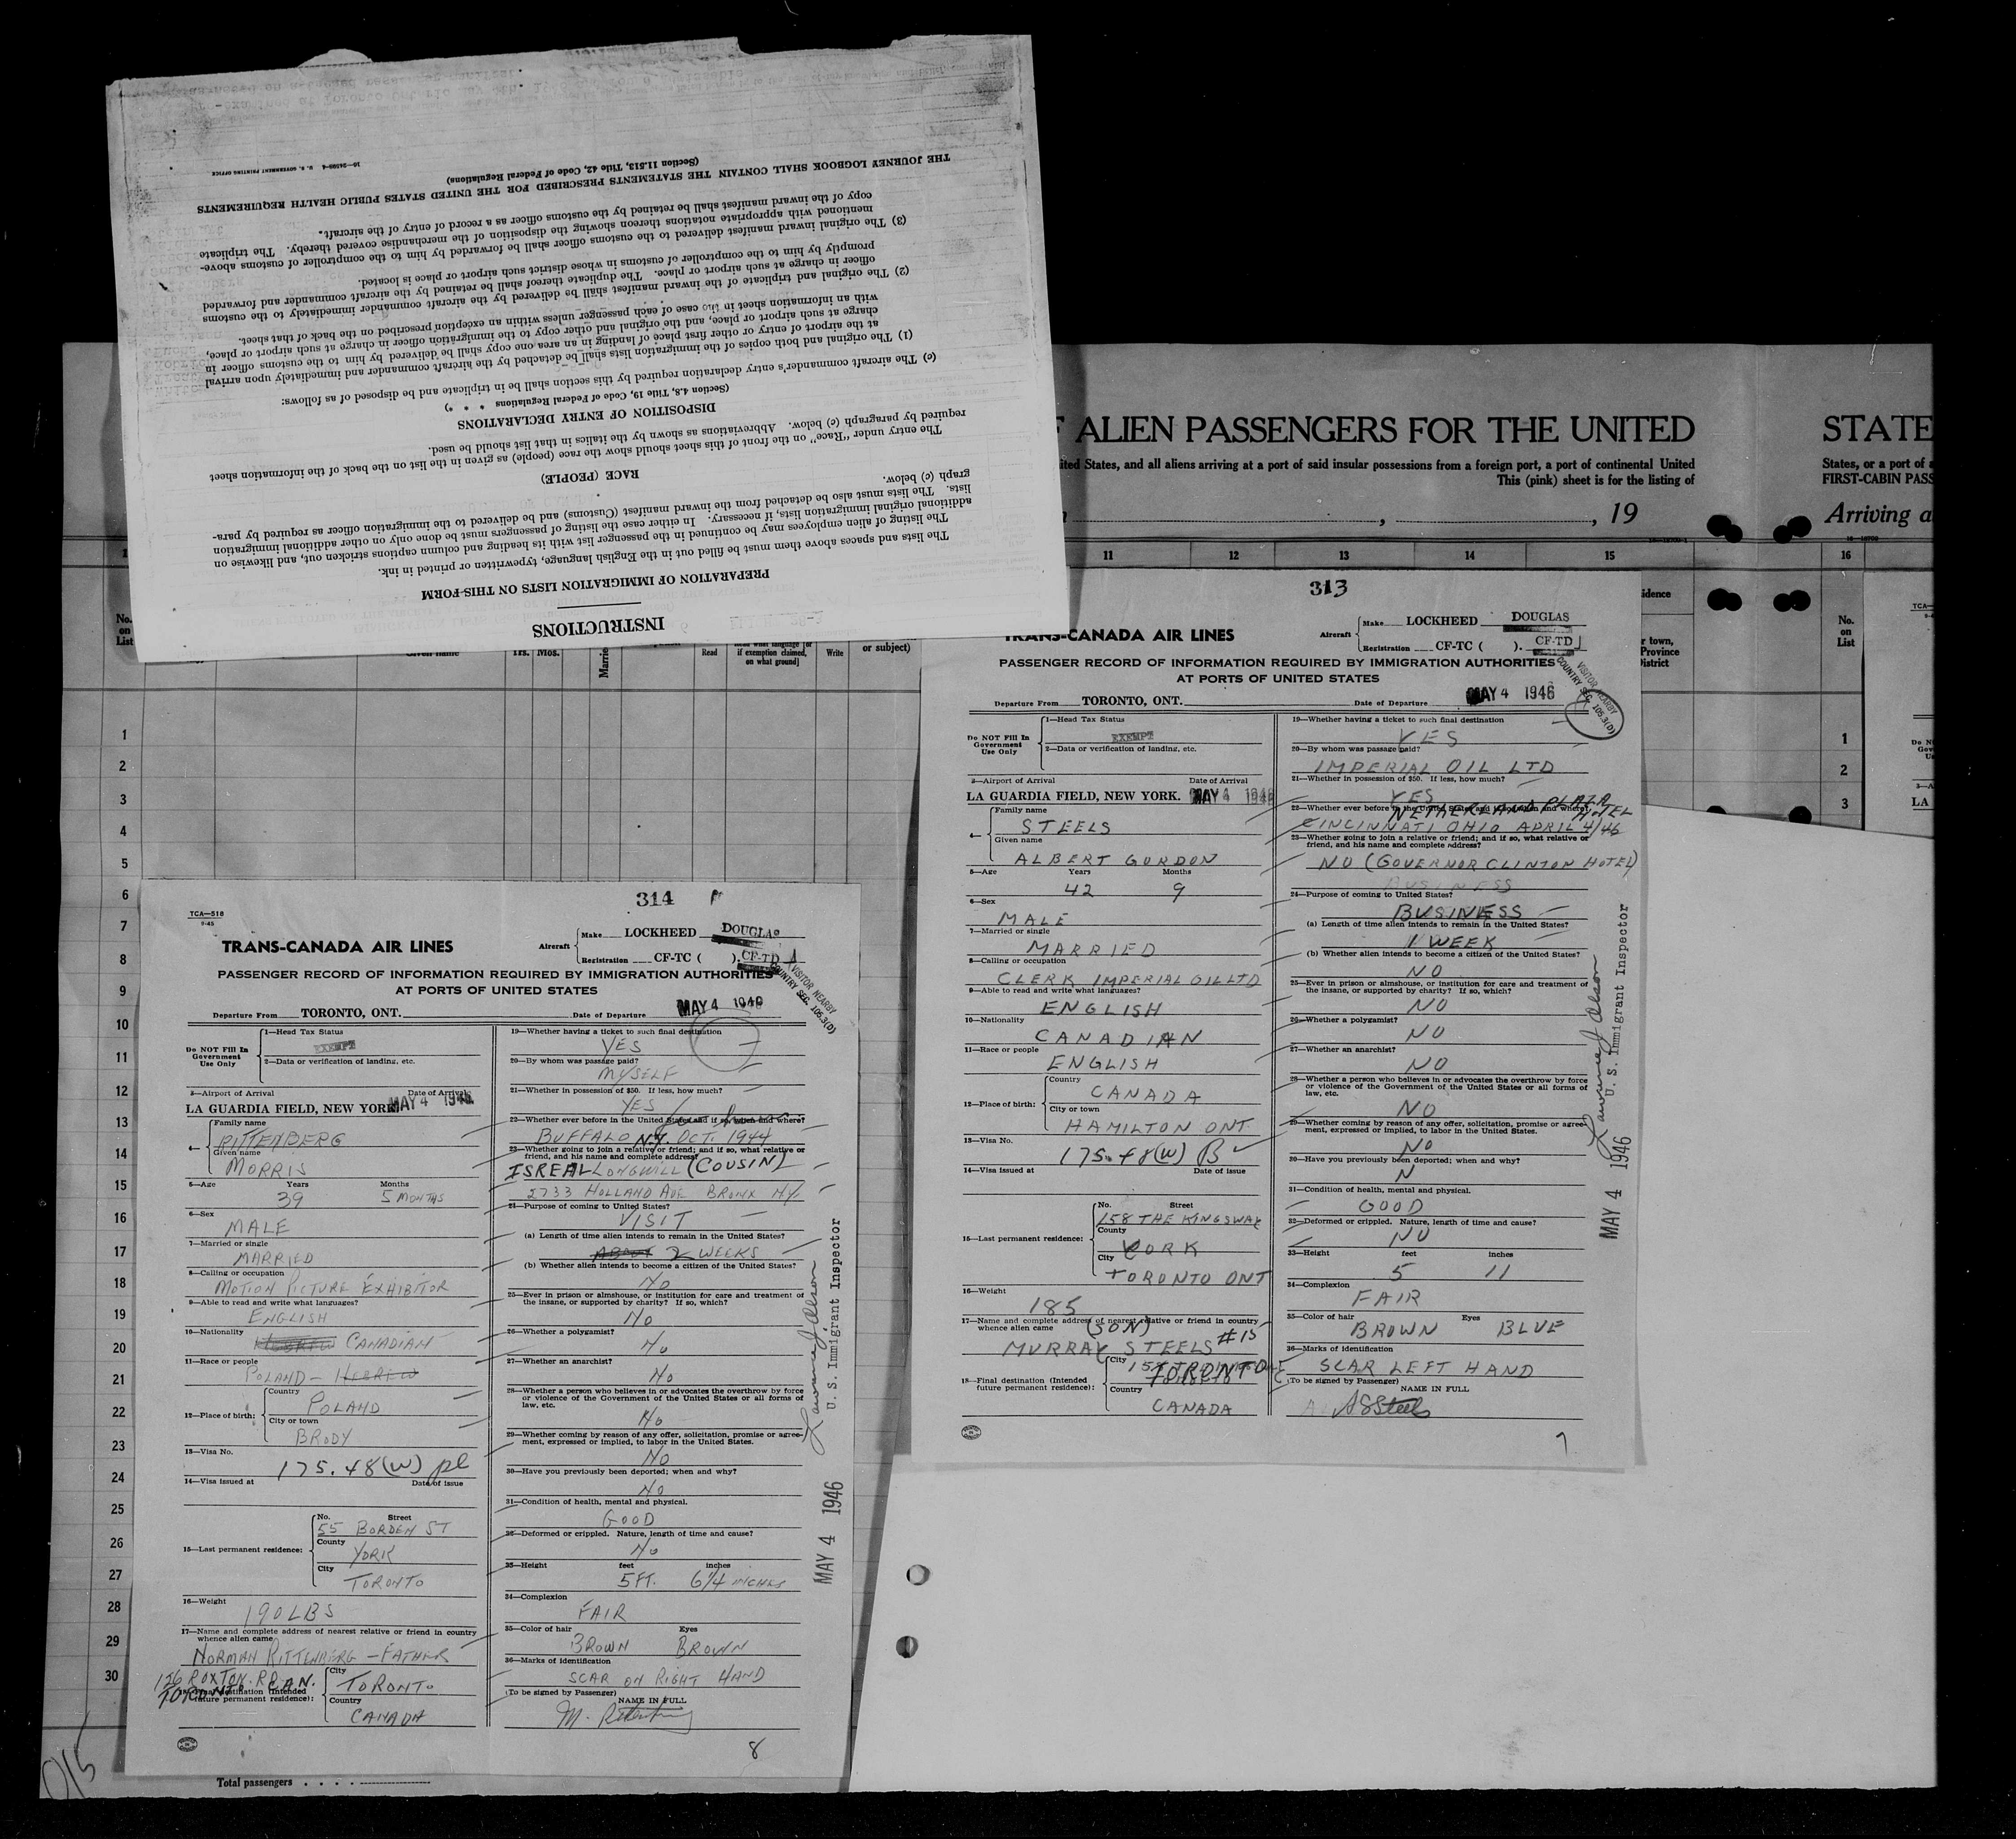 INSTRUCTIONS
PREPARATION OF IMMIGRATION LISTS ON THIS FORM
The lists and spaces above them must be filled out in the English language, typewritten or printed in ink.
The listing of alien employees may be continued in the passenger list with its heading and column captions stricken out, and likewise on
additional original immigration lists, if necessary. In either case the listing of passengers must be done only on other additional immigration
lists. The lists must also be detached from the inward manifest (Customs) and be delivered to the immigration officer as required by para-
graph (c) below.
RACE (PEOPLE)
The entry under "Race" on the front of this sheet should show the race (people) as given in the list on the back of the information sheet
required by paragraph (c) below. Abbreviations as shown by the italics in that list should be used.
DISPOSITION OF ENTRY DECLARATIONS
(Section 4.8, Title 19, Code of Federal Regulations * * *)
(c) The aircraft commander's entry declaration required by this section shall be in triplicate and be disposed of as follows:
(1) The original and both copies of the immigration lists shall be detached by the aircraft commander and immediately upon arrival
at the airport of entry or other first place of landing in an area one copy shall be delivered by him to the customs officer in
charge at such airport or place, and the original and other copy to the immigration officer in charge at such airport or place,
with an information sheet in the case of each passenger unless within an exception prescribed on the back of that sheet.
(2) The original and triplicate of the inward manifest shall be delivered by the aircraft commander immediately to the customs
officer in charge at such airport or place. The duplicate thereof shall be retained by the aircraft commander and forwarded
promptly by him to the comptroller of customs in whose district such airport or place is located.
(3) The original inward manifest delivered to the customs officer shall be forwarded by him to the comptroller of customs above-
mentioned with appropriate notations thereon showing the disposition of the merchandise covered thereby. The triplicate
copy of the inward manifest shall be retained by the customs officer as a record of entry of the aircraft.
THE JOURNEY LOGBOOK SHALL CONTAIN THE STATEMENTS PRESCRIBED FOR THE UNITED STATES PUBLIC HEALTH REQUIREMENTS
(Section 11.513, Title 42, Code of Federal Regulations)
U. S. GOVERNMENT PRINTING OFFICE
ALIEN PASSENGERS FOR THE UNITED
STATE
ited States, and all aliens arriving at a port of said insular possessions from a foreign port, a port of continental United
This (pink) sheet is for the listing of
States, or a port of
FIRST-CABIN PASS
, , 19
Arriving a
11 12 13 14 15 16
No. on List
Given name
Yrs. Mos.
Read
if exemption claimed, on what ground]
Write
or subject)
idence
r town,
Province
istrict
No. on List
1
2
3
4
5
6
7
8
9
10
11
12
13
14
15
16
17
18
19
20
21
22
23
24
25
26
27
28
29
30
1
2
3
TCA—
LA
Total passengers . . . .
915
313
TRANS-CANADA AIR LINES
Aircraft
Make LOCKHEED DOUGLAS
Registration CF-TC ( ). CF-TD J
PASSENGER RECORD OF INFORMATION REQUIRED BY IMMIGRATION AUTHORITIES
AT PORTS OF UNITED STATES
VISITOR NEARBY
COUNTRY SEC. 105.3(D)
Departure From TORONTO, ONT. Date of Departure MAY 4 1946
Do NOT Fill In Government Use Only
1—Head Tax Status
EXEMPT
2—Data or verification of landing, etc.
3—Airport of Arrival Date of Arrival
LA GUARDIA FIELD, NEW YORK. MAY 4 1946
4—
Family name
STEELS
Given name
ALBERT GORDON
5—Age Years Months
42 9
6—Sex
MALE
7—Married or single
MARRIED
8—Calling or occupation
CLERK IMPERIAL OIL LTD
9—Able to read and write what languages?
ENGLISH
10—Nationality
CANADIAN
11—Race or people
ENGLISH
12—Place of birth:
Country
CANADA
City or town
HAMILTON ONT.
13—Visa No.
175.48(W) B
14—Visa issued at Date of issue
15—Last permanent residence:
No. Street
158 THE KINGSWAY
County
YORK
City
TORONTO ONT
16—Weight
185
17—Name and complete address of nearest relative or friend in country
whence alien came
(SON)
MURRAY STEELS #15
18—Final destination (Intended future permanent residence):
City
TORONTO
Country
CANADA
19—Whether having a ticket to such final destination
YES
20—By whom was passage paid?
IMPERIAL OIL LTD
21—Whether in possession of $50. If less, how much?
YES
22—Whether ever before in the United States and if so, when and where?
NETHERLAND PLAZA HOTEL
CINCINNATI OHIO APRIL 4/46
23—Whether going to join a relative or friend; and if so, what relative or
friend, and his name and complete address?
NO (GOVERNOR CLINTON HOTEL)
24—Purpose of coming to United States?
BUSINESS
(a) Length of time alien intends to remain in the United States?
1 WEEK
(b) Whether alien intends to become a citizen of the United States?
NO
25—Ever in prison or almshouse, or institution for care and treatment of
the insane, or supported by charity? If so, which?
NO
26—Whether a polygamist?
NO
27—Whether an anarchist?
NO
28—Whether a person who believes in or advocates the overthrow by force
or violence of the Government of the United States or all forms of
law, etc.
NO
29—Whether coming by reason of any offer, solicitation, promise or agree-
ment, expressed or implied, to labor in the United States.
NO
30—Have you previously been deported; when and why?
N
31—Condition of health, mental and physical.
GOOD
32—Deformed or crippled. Nature, length of time and cause?
NO
33—Height feet inches
5 11
34—Complexion
FAIR
35—Color of hair Eyes
BROWN BLUE
36—Marks of identification
SCAR LEFT HAND
(To be signed by Passenger)
NAME IN FULL
AGSteels
7
MAY 4 1946 U. S. Immigrant Inspector
314
TCA—518
9-45
TRANS-CANADA AIR LINES
Aircraft
Make LOCKHEED DOUGLAS
Registration CF-TC ( ). CF-TD
PASSENGER RECORD OF INFORMATION REQUIRED BY IMMIGRATION AUTHORITIES
AT PORTS OF UNITED STATES
VISITOR NEARBY
COUNTRY SEC. 105.3(D)
Departure From TORONTO, ONT. Date of Departure MAY 4 1946
Do NOT Fill In Government Use Only
1—Head Tax Status
EXEMPT
2—Data or verification of landing, etc.
3—Airport of Arrival Date of Arrival
LA GUARDIA FIELD, NEW YORK MAY 4 1946
4—
Family name
RITTENBERG
Given name
MORRIS
5—Age Years Months
39 5 MONTHS
6—Sex
MALE
7—Married or single
MARRIED
8—Calling or occupation
MOTION PICTURE EXHIBITOR
9—Able to read and write what languages?
ENGLISH
10—Nationality
HEBREW CANADIAN
11—Race or people
POLAND - HEBREW
12—Place of birth:
Country
POLAND
City or town
BRODY
13—Visa No.
175.48(W) pl
14—Visa issued at Date of issue
15—Last permanent residence:
No. Street
55 BORDEN ST
County
YORK
City
TORONTO
16—Weight
190 LBS
17—Name and complete address of nearest relative or friend in country
whence alien came
NORMAN RITTENBERG - FATHER
126 ROXTON RD
TORONTO CAN.
18—Final destination (Intended future permanent residence):
City
TORONTO
Country
CANADA
19—Whether having a ticket to such final destination
YES
20—By whom was passage paid?
MYSELF
21—Whether in possession of $50. If less, how much?
YES
22—Whether ever before in the United States and if so, when and where?
BUFFALO N.Y. OCT. 1944
23—Whether going to join a relative or friend; and if so, what relative or
friend, and his name and complete address?
ISREAL LONGWILL (COUSIN)
2733 HOLLAND AVE BRONX NY.
24—Purpose of coming to United States?
VISIT
(a) Length of time alien intends to remain in the United States?
ABOUT 2 WEEKS
(b) Whether alien intends to become a citizen of the United States?
No
25—Ever in prison or almshouse, or institution for care and treatment of
the insane, or supported by charity? If so, which?
No
26—Whether a polygamist?
No
27—Whether an anarchist?
No
28—Whether a person who believes in or advocates the overthrow by force
or violence of the Government of the United States or all forms of
law, etc.
No
29—Whether coming by reason of any offer, solicitation, promise or agree-
ment, expressed or implied, to labor in the United States.
No
30—Have you previously been deported; when and why?
No
31—Condition of health, mental and physical.
GOOD
32—Deformed or crippled. Nature, length of time and cause?
No
33—Height feet inches
5 FT. 6 1/4 INCHES
34—Complexion
FAIR
35—Color of hair Eyes
BROWN BROWN
36—Marks of identification
SCAR ON RIGHT HAND
(To be signed by Passenger)
NAME IN FULL
M. Rittenberg
8
MAY 4 1946 U. S. Immigrant Inspector